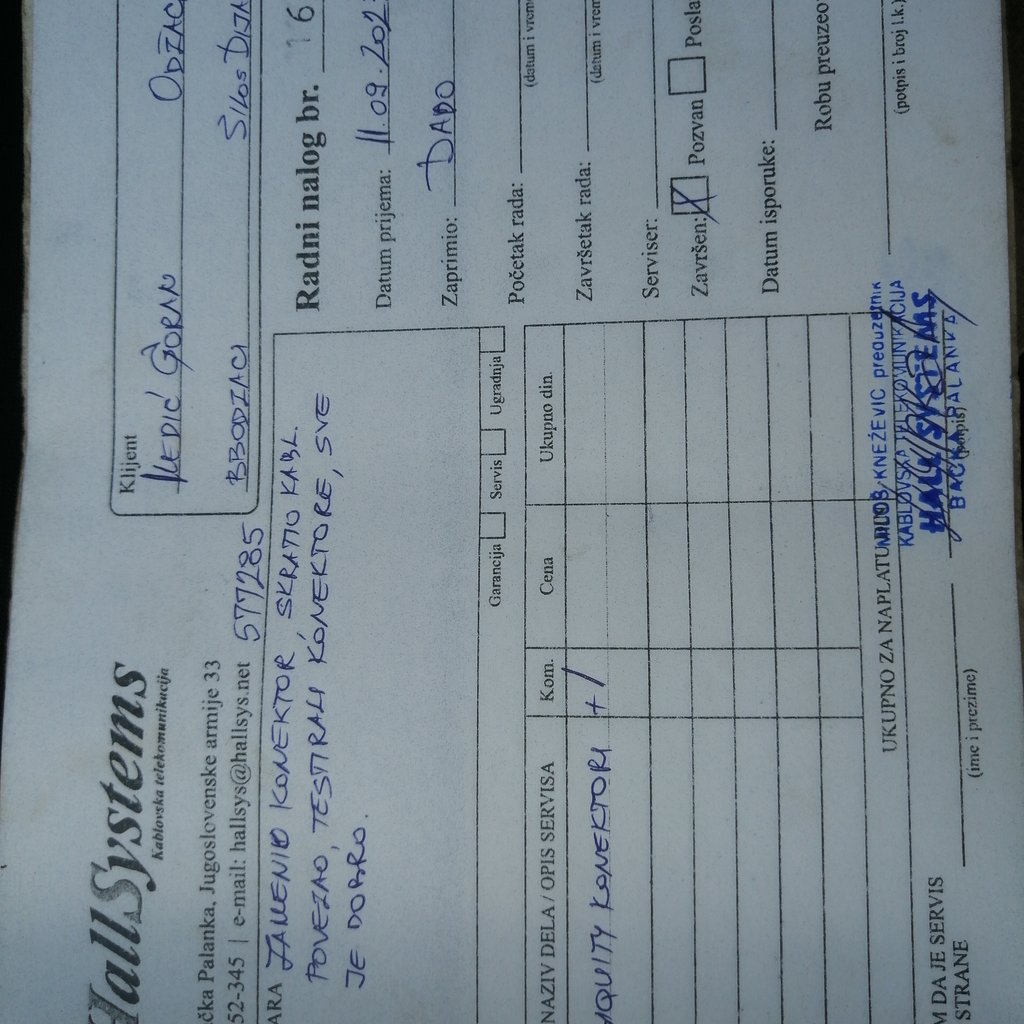 HallSystems
Kablovska telekomunikacija
čka Palanka, Jugoslovenske armije 33
52-345 | e-mail: hallsys@hallsys.net
577285
Klijent
GORAN
BBODZACI
Radni nalog br. 16
Datum prijema: 11.09.202
Zaprimio: DADO
Početak rada:
(datum i vreme
Završetak rada:
(datum i vrem
Serviser:
Završen: Pozvan Posla
Datum isporuke:
Robu preuzeo
(potpis i broj l.k.)
ARA ZAMENIO KONEKTOR, SKRATIO KABL.
POVEZAO, TESTIRALI KONEKTORE, SVE
JE DOBRO.
Garancija Servis Ugradnja
NAZIV DELA / OPIS SERVISA Kom. Cena Ukupno din.
KONEKTORI + /
UKUPNO ZA NAPLATU
MILOŠ KNEŽEVIĆ preduzetnik
KABLOVSKA TELEKOMUNIKACIJA
HALL SYSTEMS
BAČKA PALANKA
(potpis)
M DA JE SERVIS
STRANE
(ime i prezime)